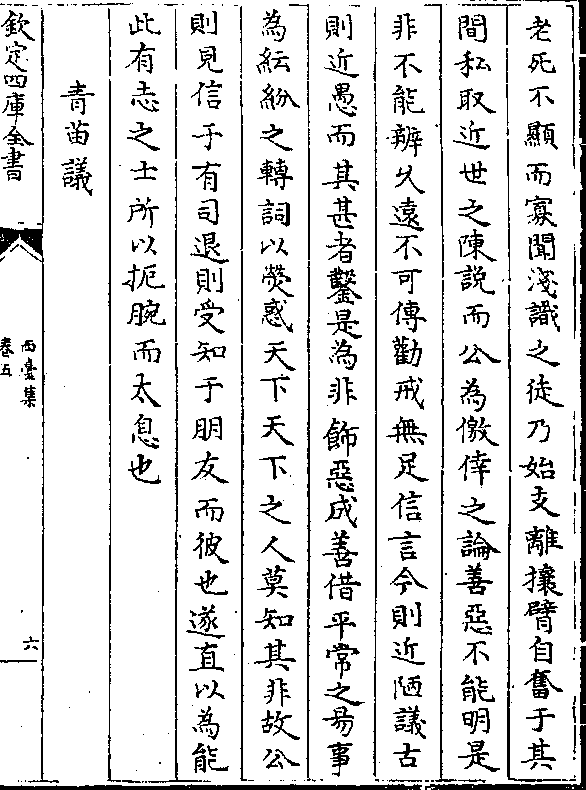 老死不顯而寡聞淺識之徒乃始支離攘臂自奮于其
間私取近世之陳說而公為僥倖之論善惡不能明是
非不能辨久遠不可傳勸戒無足信言今則近陋議古
則近愚而其甚者鑿是為非飾惡成善借平常之昜事
為紜紛之轉詞以熒惑天下天下之人莫知其非故公
則見信于有司退則受知于朋友而彼也遂直以為能
此有志之士所以扼腕而太息也
青苗議
欽定四庫全書
西臺集
卷五
六